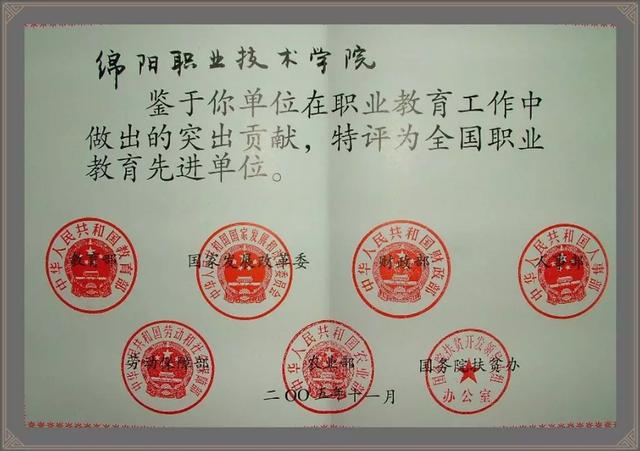 绵阳职业技术学院
鉴于你单位在职业教育工作中
做出的突出贡献，特评为全国职业
教育先进单位。
中华人民共和国教育部
教育部
中华人民共和国国家发展和改革委员会
国家发展改革委
中华人民共和国财政部
财政部
中华人民共和国人事部
人事部
中华人民共和国劳动和社会保障部
劳动保障部
中华人民共和国农业部
农业部
国务院扶贫开发领导小组
办公室
国务院扶贫办
二〇〇五年十一月